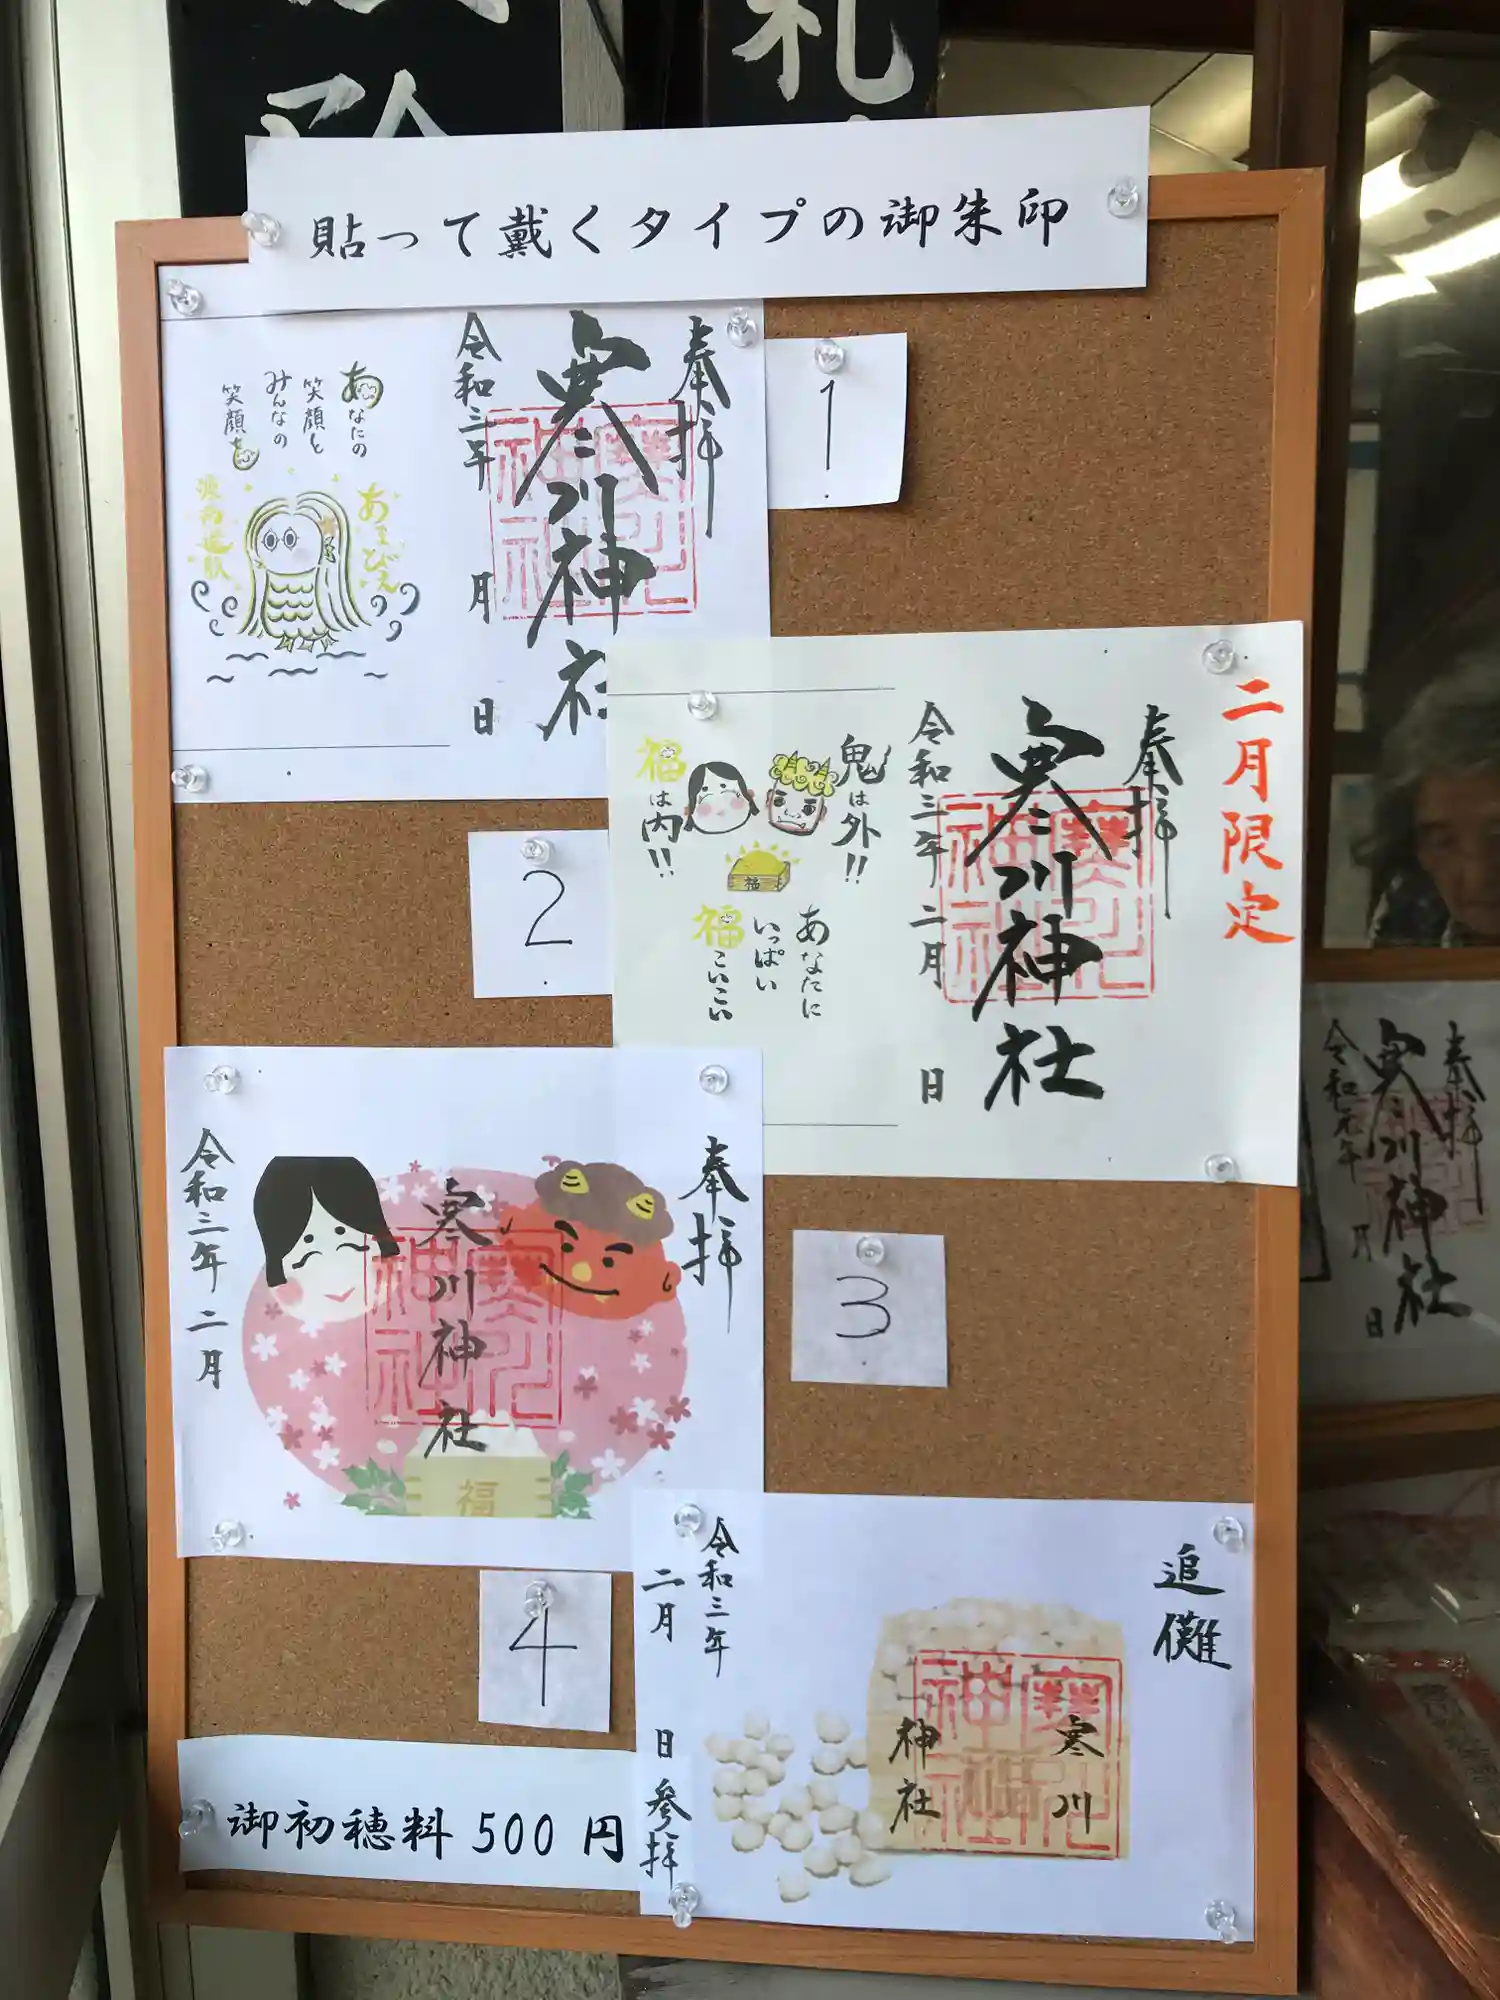 札
貼って戴くタイプの御朱印
奉拝
寒川神社
令和三年 月 日
あなたの
笑顔と
みんなの
笑顔を
あまびえ
疫病退散
1
二月限定
奉拝
寒川神社
令和三年 二月 日
鬼は外!!
福は内!!
福
あなたに
いっぱい
福こいこい
2
奉拝
寒川神社
令和三年 二月
福
3
追儺
寒川
神社
令和三年
二月 日 参拝
4
御初穂料 500 円
奉拝
寒川神社
令和元年 月 日